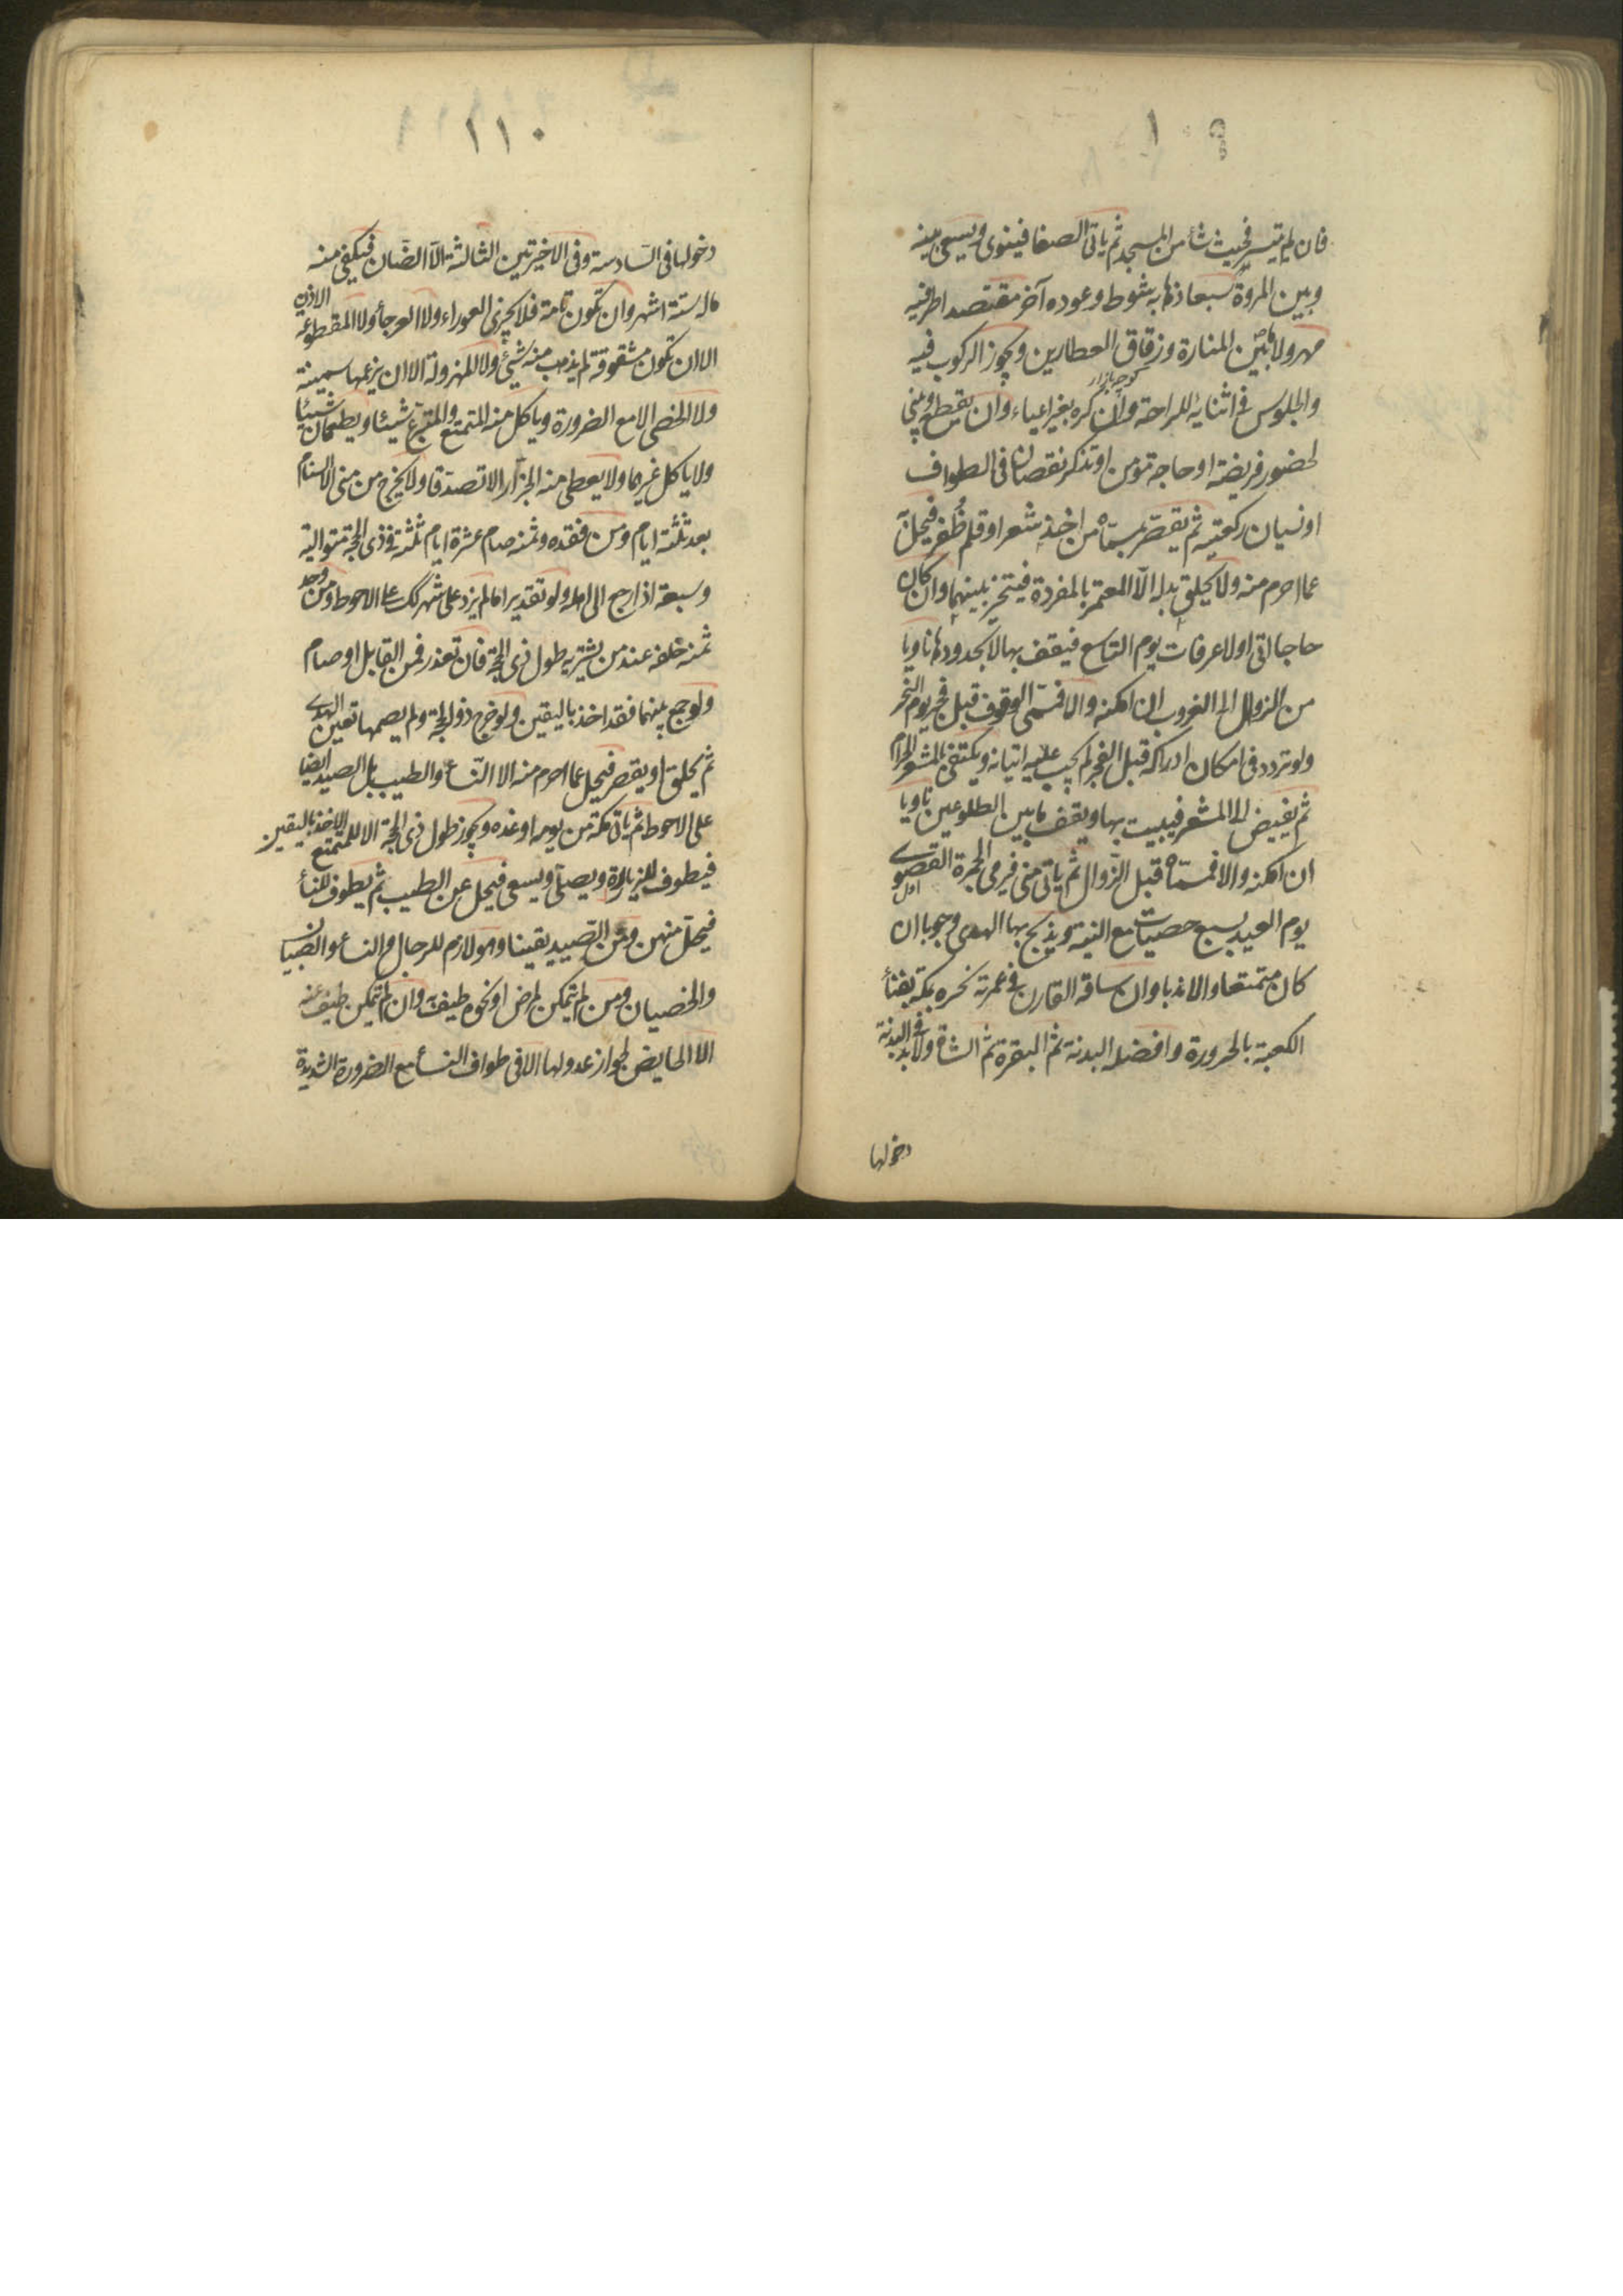 ١٠٩
فان لم تيسر فحيث شاء من المسجد ثم ياتى الصفا فينوى ويسعى بينه
وبين المروة سبعا ذهابه شوط وعوده آخر مقتصدا طرفيه
مهرولا ما بين المنارة وزقاق العطارين ويجوز الركوب فيه
كوچه بازار
والجلوس فى اثنائه للراحة وان كره بغير اعياء وان يقطع ويبنى
لحضور فريضة او حاجة مؤمن او تذكر نقصان فى الطواف
او نسيان ركعتيه ثم يقصر بمسماه من اخذ شعر او قلم ظُفر فيحلّ
عما احرم منه ولا يحلق بدله الّا المعتمر بالمفردة فيتخير بينهما وان كان
حاجا اتى اولا عرفات يوم التاسع فيقف بها لا بحدودها ناويا
من الزوال الى الغروب ان امكنه والا فمسمى الوقوف قبل فجر يوم النحر
ولو تردد فى امكان ادراكه قبل الفجر لم يجب عليه اتيانه ويكتفى بالمشعر الحرام
ثم يفيض الى المشعر فيبيت بها ويقف ما بين الطلوعين ناويا
ان امكنه والا فمسماه قبل الزوال ثم ياتى منى فيرمى الجمرة القصوى
اول
يوم العيد بسبع حصيات مع النية ويذبح بها الهدى وجوبا ان
كان متمتعا والا ندبا وان ساقه القارن فى عمرته نحره بمكة بفناء
الكعبة بالحزورة وافضله البدنة ثم البقرة ثم الشاة ولا بد فى البدنة
دخولها
١١٠
دخولها فى السادسة وفى الاخيرتين الثالثة الّا الضان فيكفى منه
ماله ستة اشهر وان تكون تامة فلا يجزى العوراء ولا العرجاء ولا المقطوعة الاذن
الا ان تكون مشقوقة لم يذهب منه شئ ولا المهزولة الا ان يزعمها سمينة
ولا الخصى الا مع الضرورة وياكل منه المتمتع والمتبرع شيئا ويطعمان شيئا
ولا ياكل غيرهما ولا يعطى منه الجزار الا تصدقا ولا يخرج من منى الا السنام
بعد ثلثة ايام ومن فقده وثمنه صام عشرة ايام ثلثة فى ذى الحجة متوالية
وسبعة اذا رجع الى اهله ولو تقديرا ما لم يزد على شهر كك على الاحوط ومن وجد
ثمنه خلفه عند من يشتريه طول ذى الحجة فان تعذر فمن القابل او صام
ولو جمع بينهما فقد اخذ باليقين ولو خرج ذو الحجة ولم يصمها تعين الهدى
ثم يحلق او يقصر فيحل عما احرم منه الا النساء والطيب بل الصيد ايضا
على الاحوط ثم ياتى مكة من يومه او غده ويجوز طول ذى الحجة الا للمتمتع الاخذ باليقين
فيطوف للزيارة ويصلى ويسعى فيحل عن الطيب ثم يطوف للنساء
فيحل منهن ومن الصيد يقينا وهو لازم للرجال والنساء والصبيان
والخصيان ومن لم يتمكن لمرض او نحوه طيف به وان لم يتمكن طيف عنه
الا الحايض لجواز عدولها الا فى طواف النساء مع الضرورة الشديدة